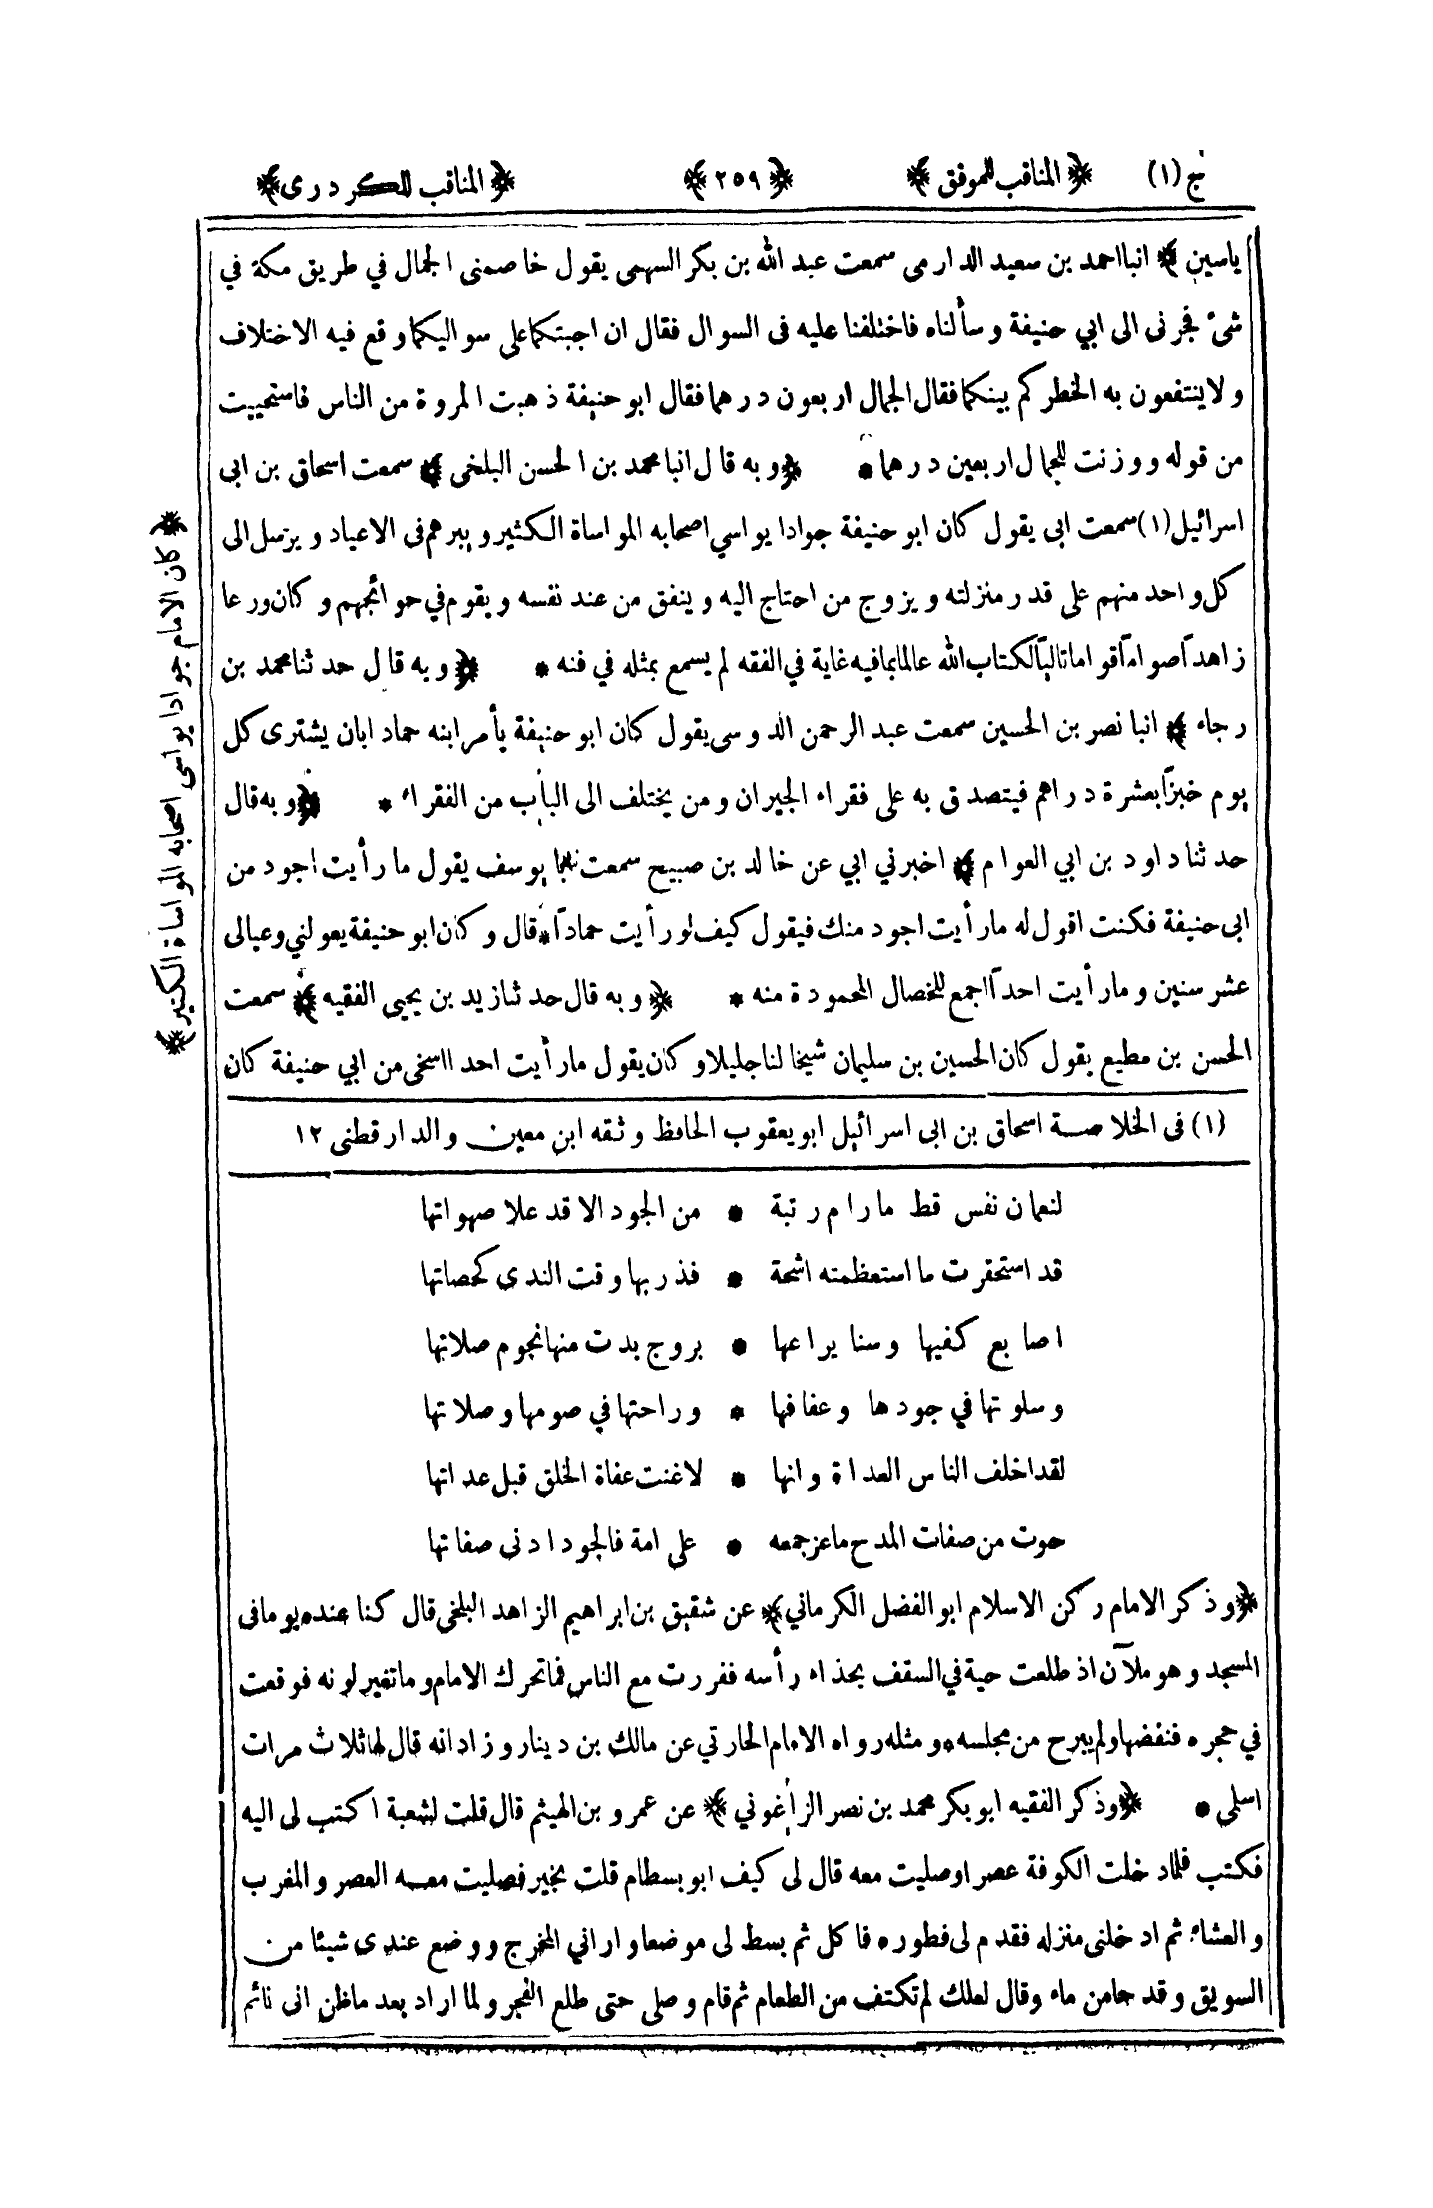 ج (١) ﴿ المناقب للموفق ﴾ ﴿ ٢٥٩ ﴾ ﴿ المناقب للكردرى ﴾
ياسين ﴾ انبا احمد بن سعيد الدارمى سمعت عبد الله بن بكر السهمى يقول خاصمنى الجمال في طريق مكة في
شئ فجرنى الى ابي حنيفة وسألناه فاختلفنا عليه فى السوال فقال ان اجبتكما على سواليكما وقع فيه الاختلاف
ولا ينتفعون به الخطر كم بينكما فقال الجمال اربعون درهما فقال ابو حنيفة ذهبت المروة من الناس فاستحييت
من قوله ووزنت للجمال اربعين درهما * ﴿ وبه قال انبا محمد بن الحسن البلخى ﴾ سمعت اسحاق بن ابى
اسرائيل (١) سمعت ابى يقول كان ابو حنيفة جوادا يواسي اصحابه المواساة الكثير ويبرهم فى الاعياد ويرسل الى
كل واحد منهم على قدر منزلته ويزوج من احتاج اليه وينفق من عند نفسه ويقوم في حوائجهم وكان ورعا
زاهدآ صوامآ قواما تاليآ لكتاب الله عالما بما فيه غاية في الفقه لم يسمع بمثله في فنه * ﴿ وبه قال حدثنا محمد بن
رجاء ﴾ انبا نصر بن الحسين سمعت عبد الرحمن الدوسى يقول كان ابو حنيفة يأمر ابنه حماد ابان يشترى كل
يوم خبزآ بعشرة دراهم فيتصدق به على فقراء الجيران ومن يختلف الى الباب من الفقراء * ﴿ وبه قال
حدثنا داود بن ابي العوام ﴾ اخبرني ابي عن خالد بن صبيح سمعت يوسف يقول ما رأيت اجود من
ابى حنيفة فكنت اقول له ما رأيت اجود منك فيقول كيف لو رأيت حمادآ * قال وكان ابو حنيفة يعولني وعيالى
عشر سنين وما رأيت احدآ اجمع للخصال المحمودة منه * ﴿ وبه قال حدثنا زيد بن يحيى الفقيه ﴾ سمعت
الحسن بن مطيع يقول كان الحسين بن سليمان شيخا لنا جليلا وكان يقول ما رأيت احدا اسخى من ابي حنيفة كان
﴿ كان الامام جوادا يواسى اصحابه المواساة الكثير ﴾
(١) فى الخلاصة اسحاق بن ابى اسرائيل ابو يعقوب الحافظ وثقه ابن معين والدارقطنى ١٢
لنعمان نفس قط ما رام رتبة * من الجود الا قد علا صهواتها
قد استحقرت ما استعظمته اشحة * فذر بها وقت الندى كحصاتها
اصابع كفيها وسنا يراعها * بروج بدت منها نجوم صلاتها
وسلوتها في جودها وعفافها * وراحتها في صومها وصلاتها
لقد اخلف الناس العداة وانها * لاغنت عفاة الخلق قبل عداتها
حوت من صفات المدح ما عز جمعه * على امة فالجود ادنى صفاتها
﴿ وذكر الامام ركن الاسلام ابو الفضل الكرماني ﴾ عن شقيق بن ابراهيم الزاهد البلخى قال كنا عنده يوما فى
المسجد وهو ملآن اذ طلعت حية في السقف بحذاء رأسه ففررت مع الناس فما تحرك الامام وما تغير لونه فوقعت
في حجره فنفضها ولم يبرح من مجلسه * ومثله رواه الامام الحارثي عن مالك بن دينار وزاد انه قال لها ثلاث مرات
اسلمى * ﴿ وذكر الفقيه ابو بكر محمد بن نصر الزاغوني ﴾ عن عمرو بن الهيثم قال قلت لشعبة اكتب لى اليه
فكتب فلما دخلت الكوفة عصرا وصليت معه قال لى كيف ابو بسطام قلت بخير فصليت معه العصر والمغرب
والعشاء ثم ادخلنى منزله فقدم لى فطوره فاكل ثم بسط لى موضعا واراني المخرج ووضع عندى شيئا من
السويق وقدحا من ماء وقال لعلك لم تكتف من الطعام ثم قام وصلى حتى طلع الفجر ولما اراد بعد ما ظن انى نائم